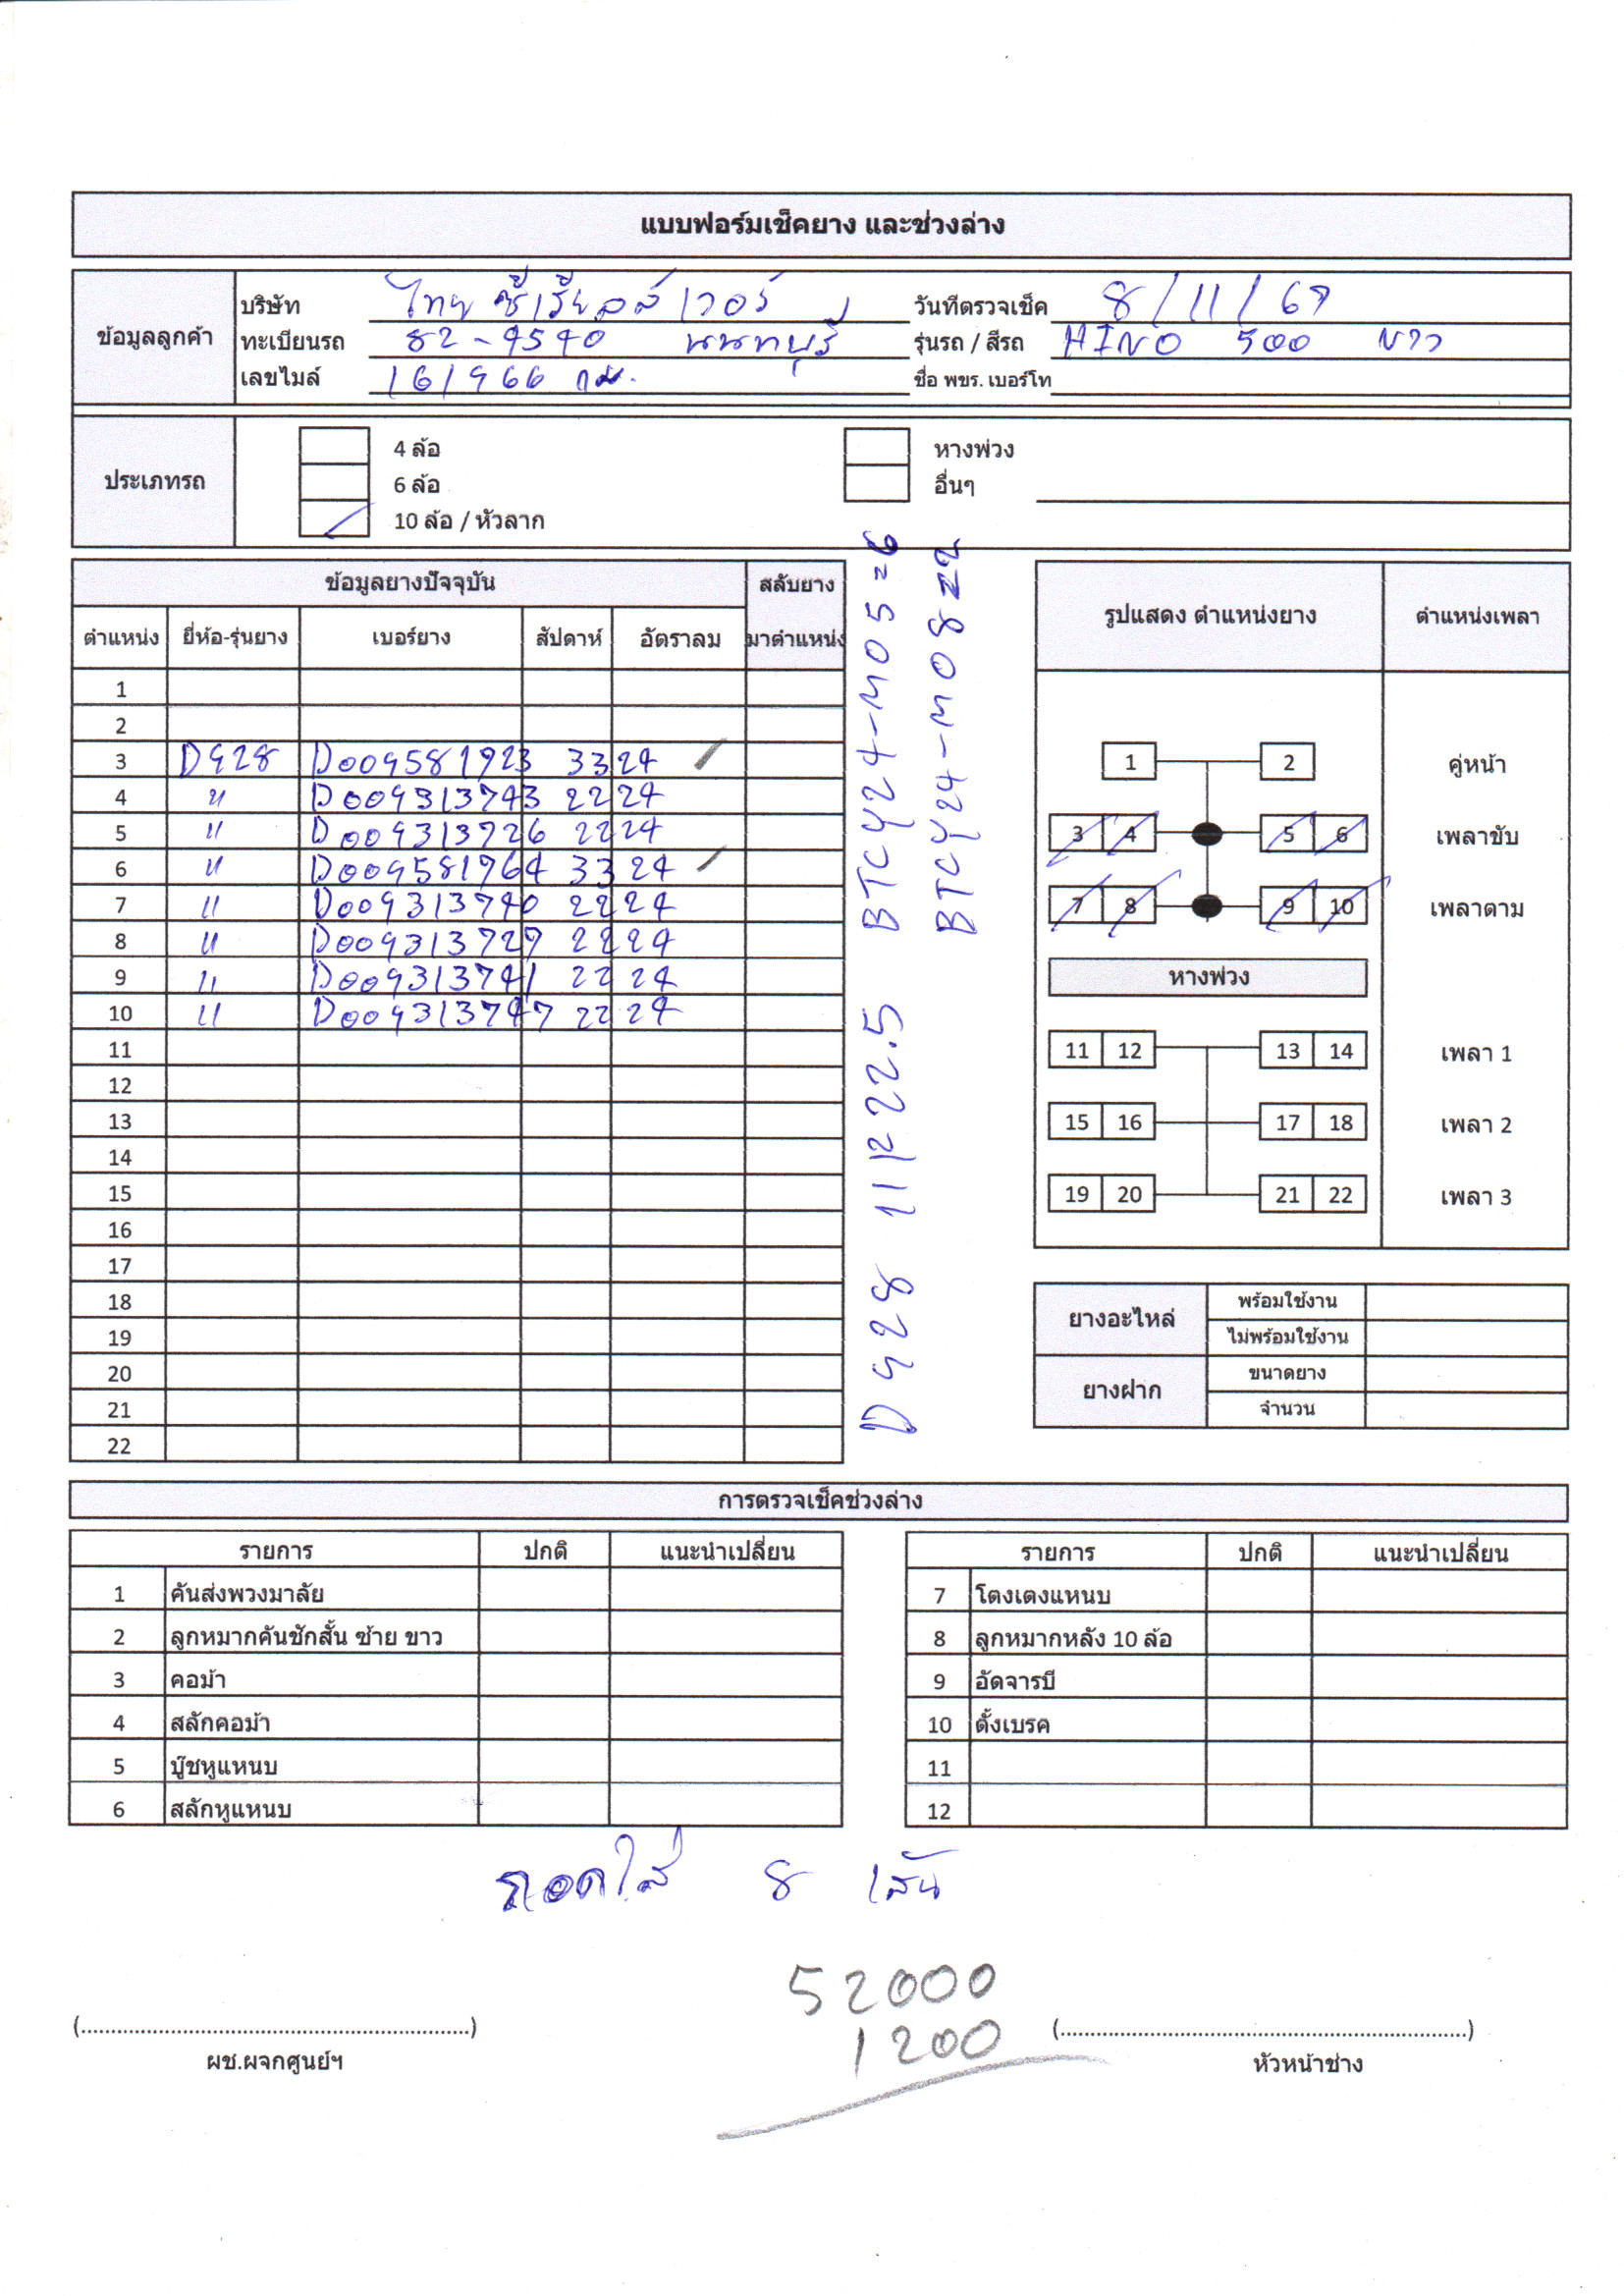 แบบฟอร์มเช็คยาง และช่วงล่าง
ข้อมูลลูกค้า
บริษัท ไทย ซีเรียลส์ เวอร์ วันที่ตรวจเช็ค 8/11/67
ทะเบียนรถ 82-9540 นนทบุรี รุ่นรถ / สีรถ HINO 500 ขาว
เลขไมล์ 161966 กม. ชื่อ พขร. เบอร์โท
ประเภทรถ
4 ล้อ หางพ่วง
6 ล้อ อื่นๆ
10 ล้อ / หัวลาก
ข้อมูลยางปัจจุบัน สลับยาง
ตำแหน่ง ยี่ห้อ-รุ่นยาง เบอร์ยาง สัปดาห์ อัตราลม มาตำแหน่ง
1
2
3 D928 D009581923 3324
4 " D009313743 2224
5 " D009313726 2224
6 " D009581964 3324
7 " D009313740 2224
8 " D009313727 2224
9 " D009313741 2224
10 " D009313747 2224
11
12
13
14
15
16
17
18
19
20
21
22
D928 11R22.5 BTCY24-M05=6
BTCY24-M08=2
รูปแสดง ตำแหน่งยาง ตำแหน่งเพลา
1 2 คู่หน้า
3 4 5 6 เพลาขับ
7 8 9 10 เพลาตาม
หางพ่วง
11 12 13 14 เพลา 1
15 16 17 18 เพลา 2
19 20 21 22 เพลา 3
ยางอะไหล่ พร้อมใช้งาน
ไม่พร้อมใช้งาน
ยางฝาก ขนาดยาง
จำนวน
การตรวจเช็คช่วงล่าง
รายการ ปกติ แนะนำเปลี่ยน
1 คันส่งพวงมาลัย
2 ลูกหมากคันชักสั้น ซ้าย ขาว
3 คอม้า
4 สลักคอม้า
5 บู๊ชหูแหนบ
6 สลักหูแหนบ
รายการ ปกติ แนะนำเปลี่ยน
7 โตงเตงแหนบ
8 ลูกหมากหลัง 10 ล้อ
9 อัดจารบี
10 ตั้งเบรค
11
12
ถอดใส่ 8 เส้น
52000
1200
(..................................................................)
ผช.ผจกศูนย์ฯ
(.....................................................................)
หัวหน้าช่าง